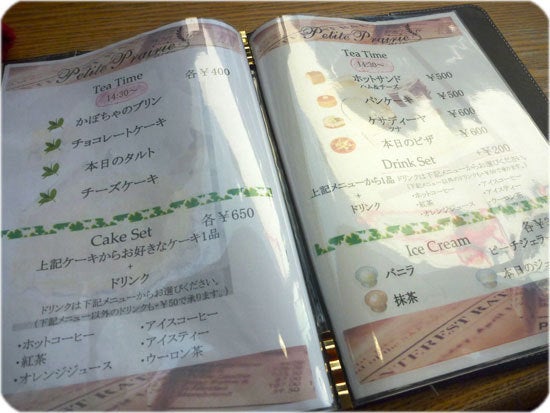 Petite Prairie
Tea Time
14:30～
各￥400
かぼちゃのプリン
チョコレートケーキ
本日のタルト
チーズケーキ
各￥650
Cake Set
上記ケーキからお好きなケーキ1品
+
ドリンク
ドリンクは下記メニューからお選びください。
(下記メニュー以外のドリンクも+￥50で承ります。)
・ホットコーヒー
・アイスコーヒー
・紅茶
・アイスティー
・オレンジジュース
・ウーロン茶
Petite Prairie
Tea Time
14:30～
ホットサンド
ハム&チーズ
￥500
パンケーキ
￥500
ケサディーヤ
ツナ
￥600
本日のピザ
￥600
Drink Set
+￥200
上記メニューから1品
+
ドリンク
ドリンクは下記メニューからお選びください。
・ホットコーヒー
・アイスコーヒー
・紅茶
・アイスティー
・オレンジジュース
・ウーロン茶
Ice Cream
バニラ
ピーチジェラ
抹茶
本日のジェ